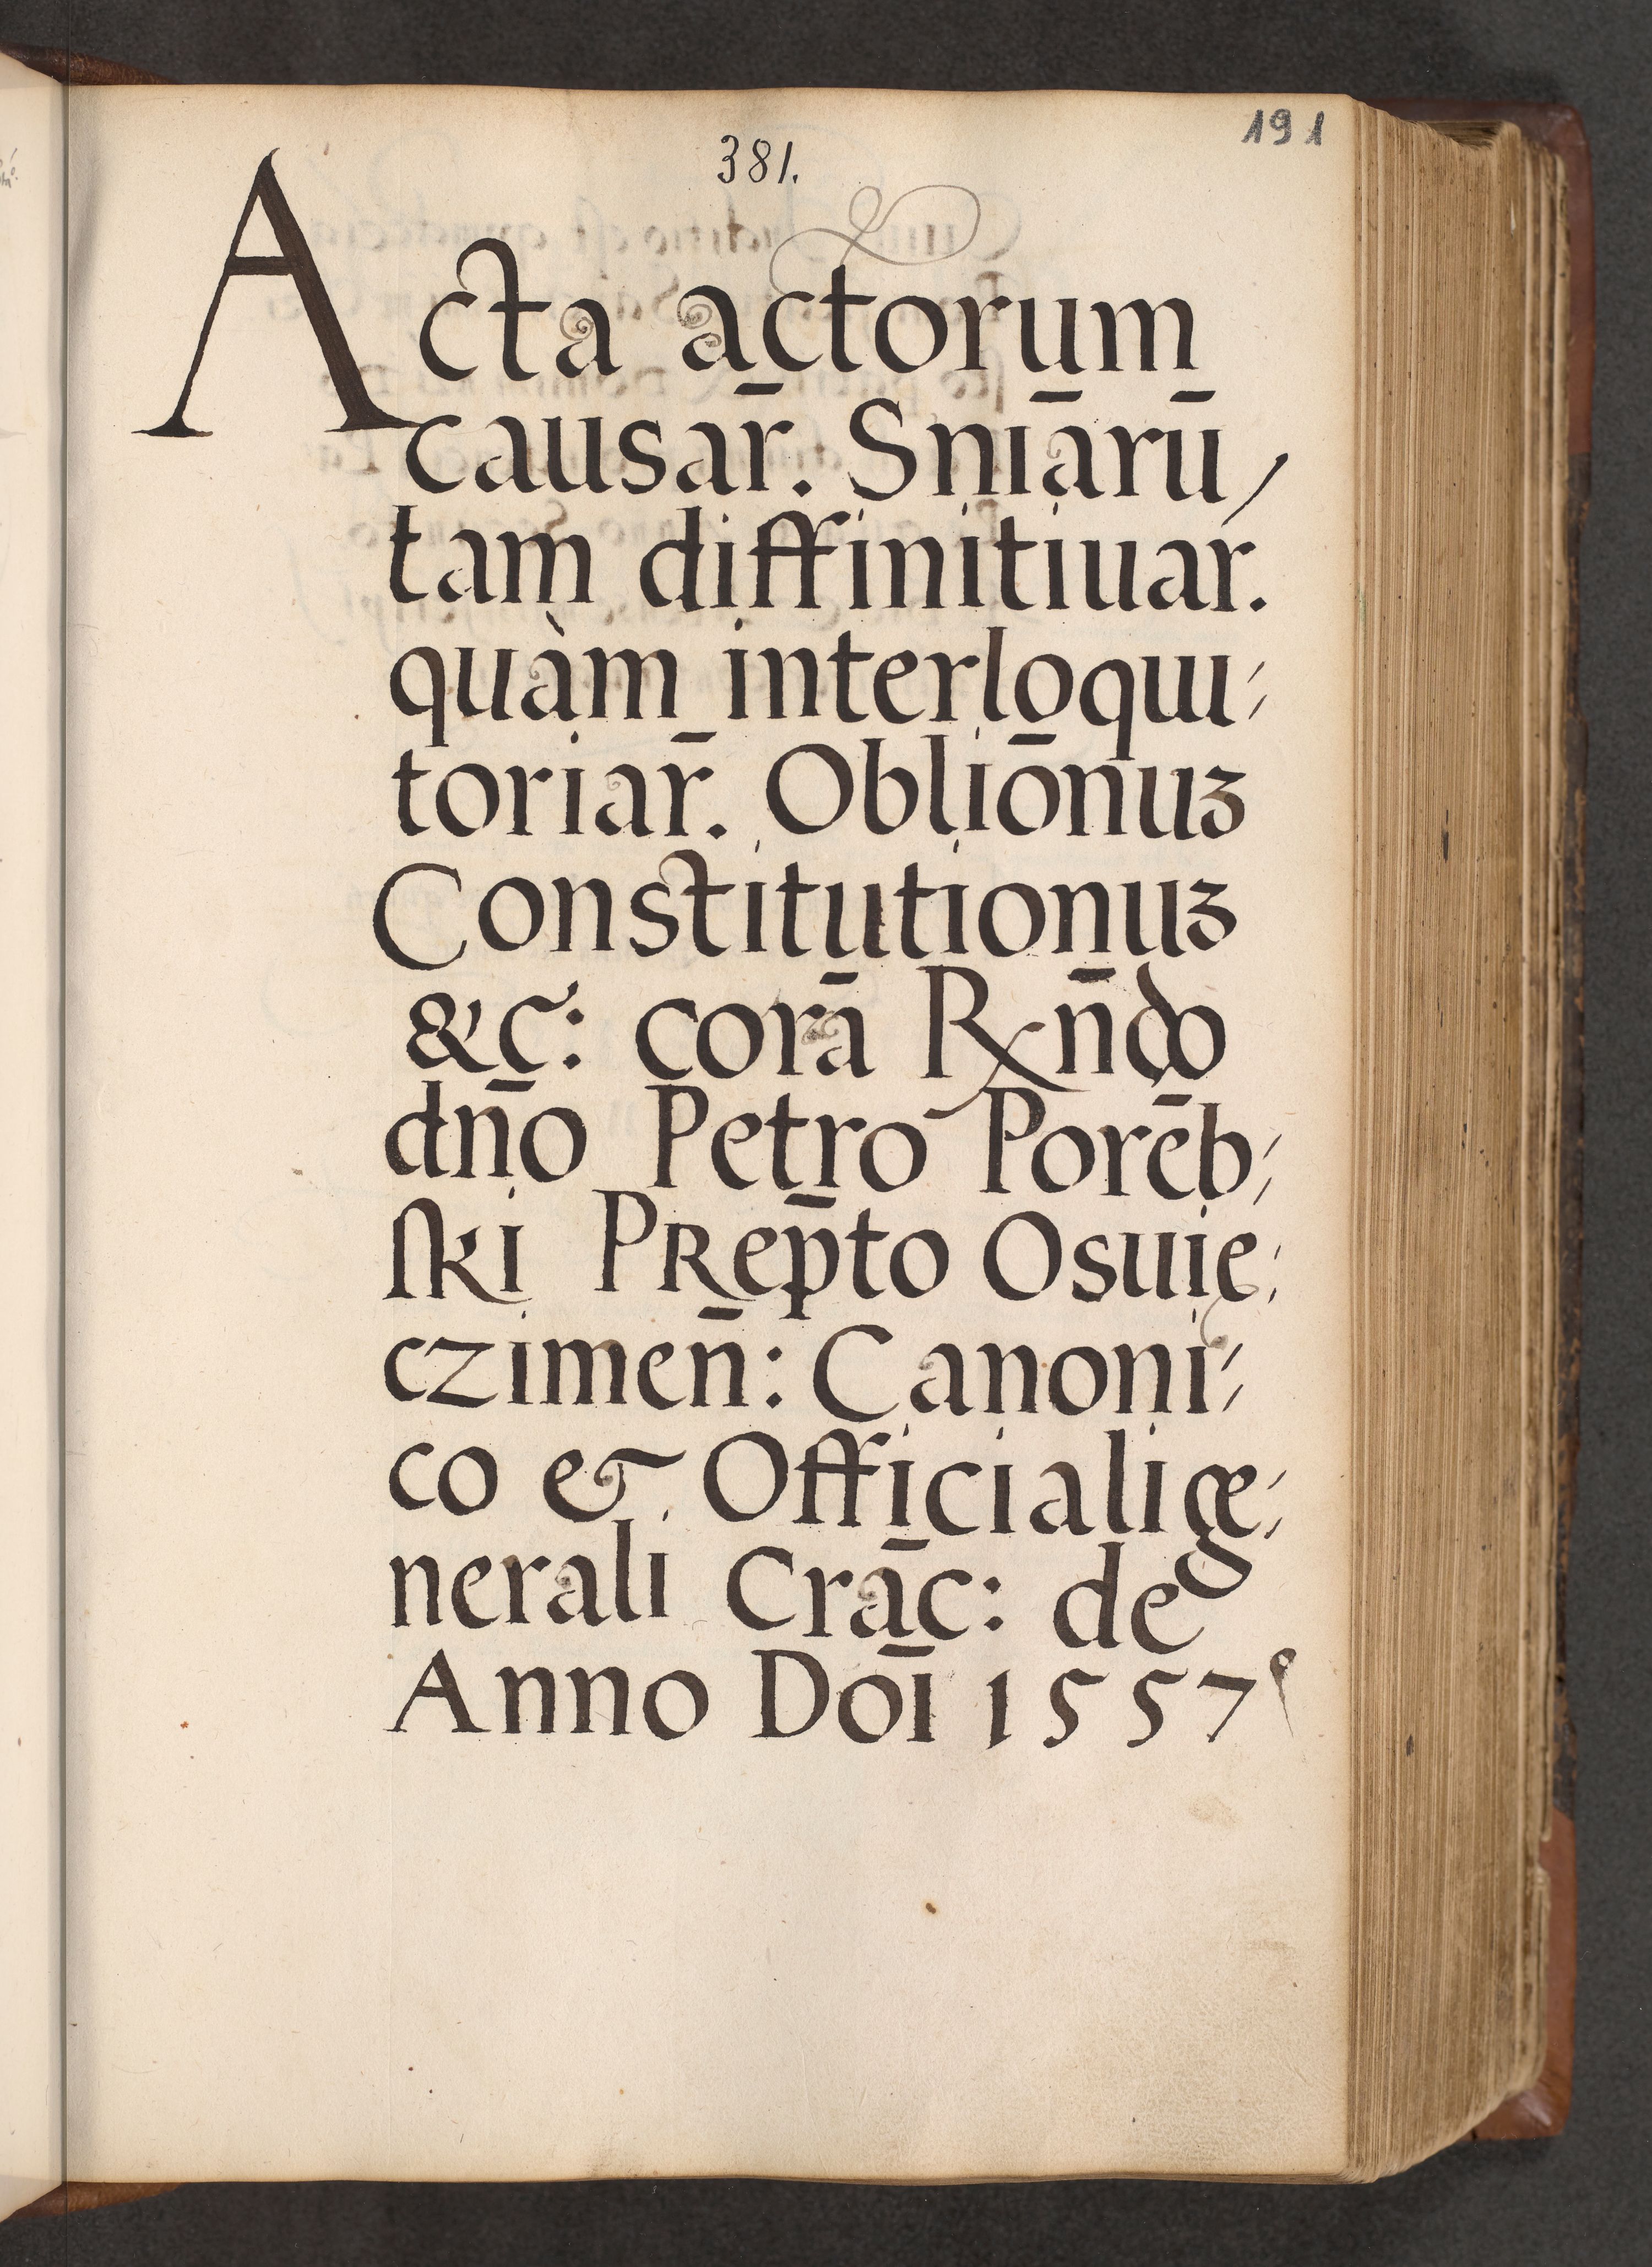 381.
191
Acta actorum
causar̄. Sniārū /
tam diffinitiuar.
quàm interloqui⸗
toriar̄. Obliōnuꝫ
Constitutionuꝫ
&c̃: corā Rñdo
dño Petro Porēb⸗
ſki PRep̄to Osuie⸗
czimeñ: Canoni⸗
co & Officiali ge⸗
nerali Crāc: de
Anno Doī 1557